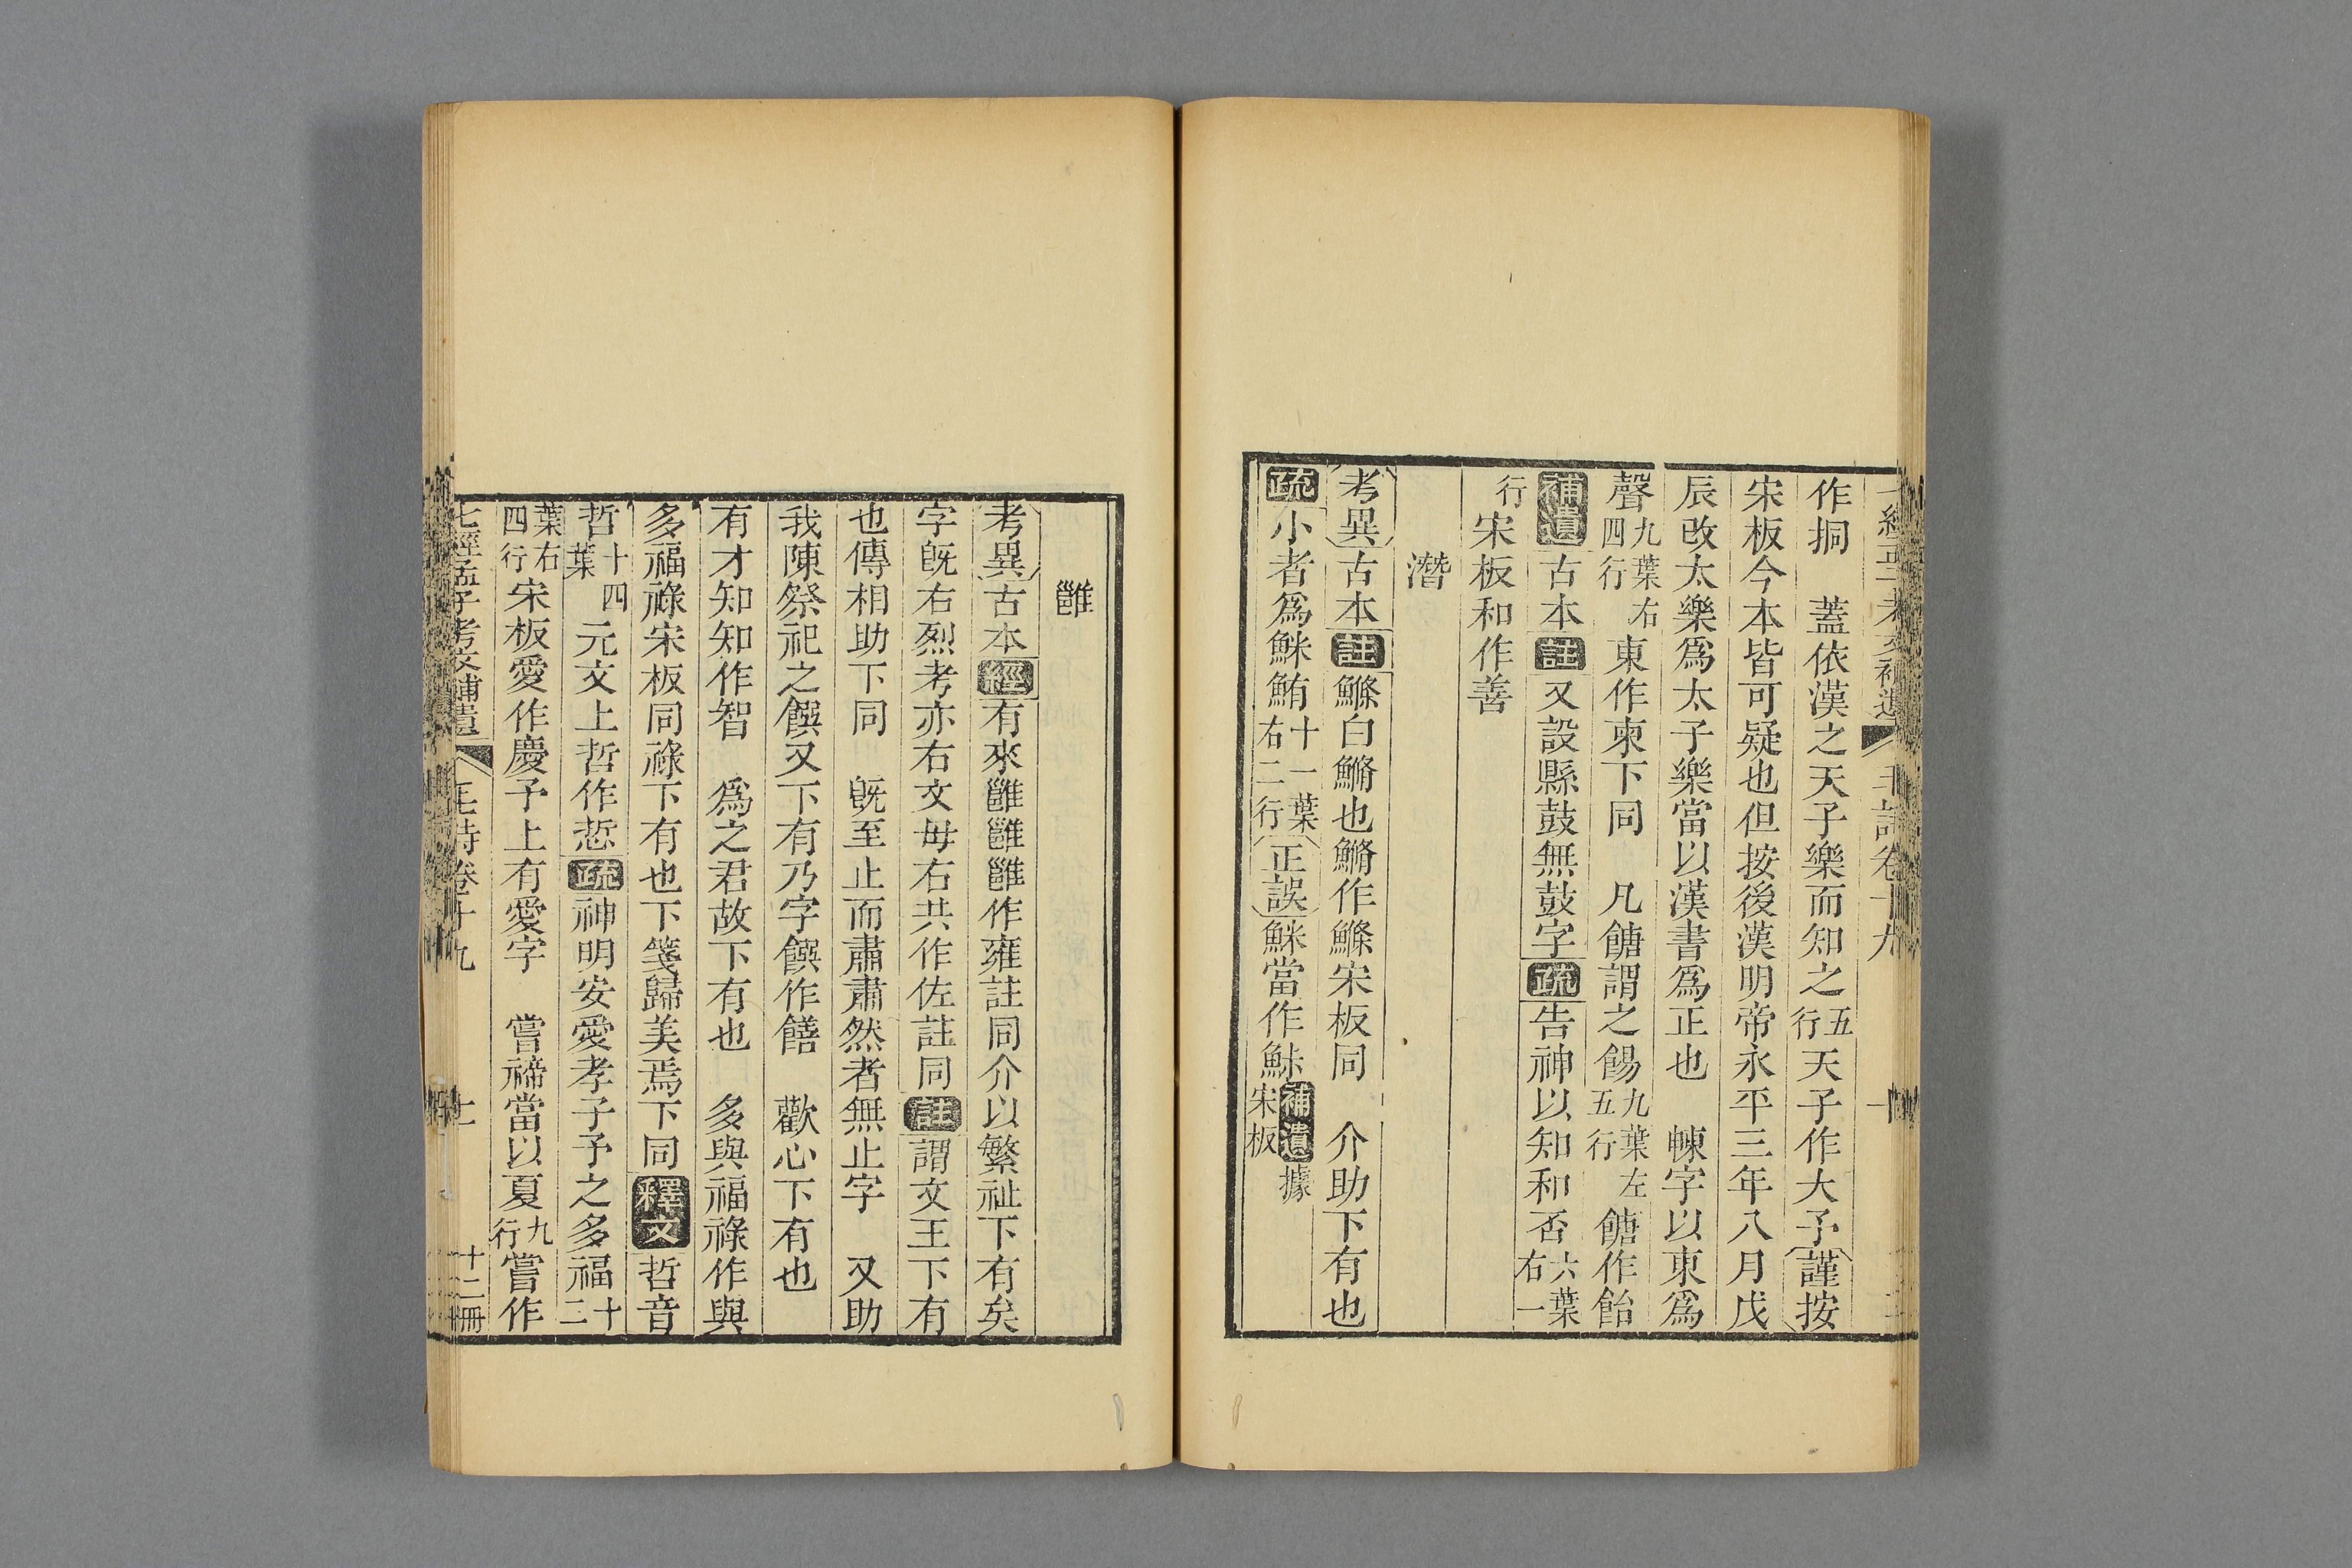 作挏　蓋依漢之天子樂而知之五行天子作大予謹按
宋板今本皆可疑也但按後漢明帝永平三年八月戊
辰改太樂爲太子樂當以漢書爲正也　㯥字以東爲
聲九葉右四行東作柬下同　凡餹謂之餳九葉左五行餹作飴
補遺古本註又設縣鼓無鼓字疏告神以知和否六葉右一
行宋板和作善
潛
考異古本註鰷白鰷也鰷作鰷宋板同　介助下有也
疏小者爲鮇鮪十一葉右二行正誤鮇當作鮛補遺據宋板
雝
考異古本經有來雝雝雝作雍註同介以繁祉下有矣
字旣右烈考亦右文母右共作佐註同註謂文王下有
也傳相助下同　旣至止而肅肅然者無止字　又助
我陳祭祀之饌又下有乃字饌作饍　歡心下有也
有才知知作智　爲之君故下有也　多與福祿作與
多福祿宋板同祿下有也下箋歸美焉下同釋文哲音
哲十四葉元文上哲作悊疏神明安愛孝子予之多福十二
葉右四行宋板愛作慶予上有愛字　嘗禘當以夏九行嘗作
七經孟子考文補遺　毛詩卷十九　七　十二冊